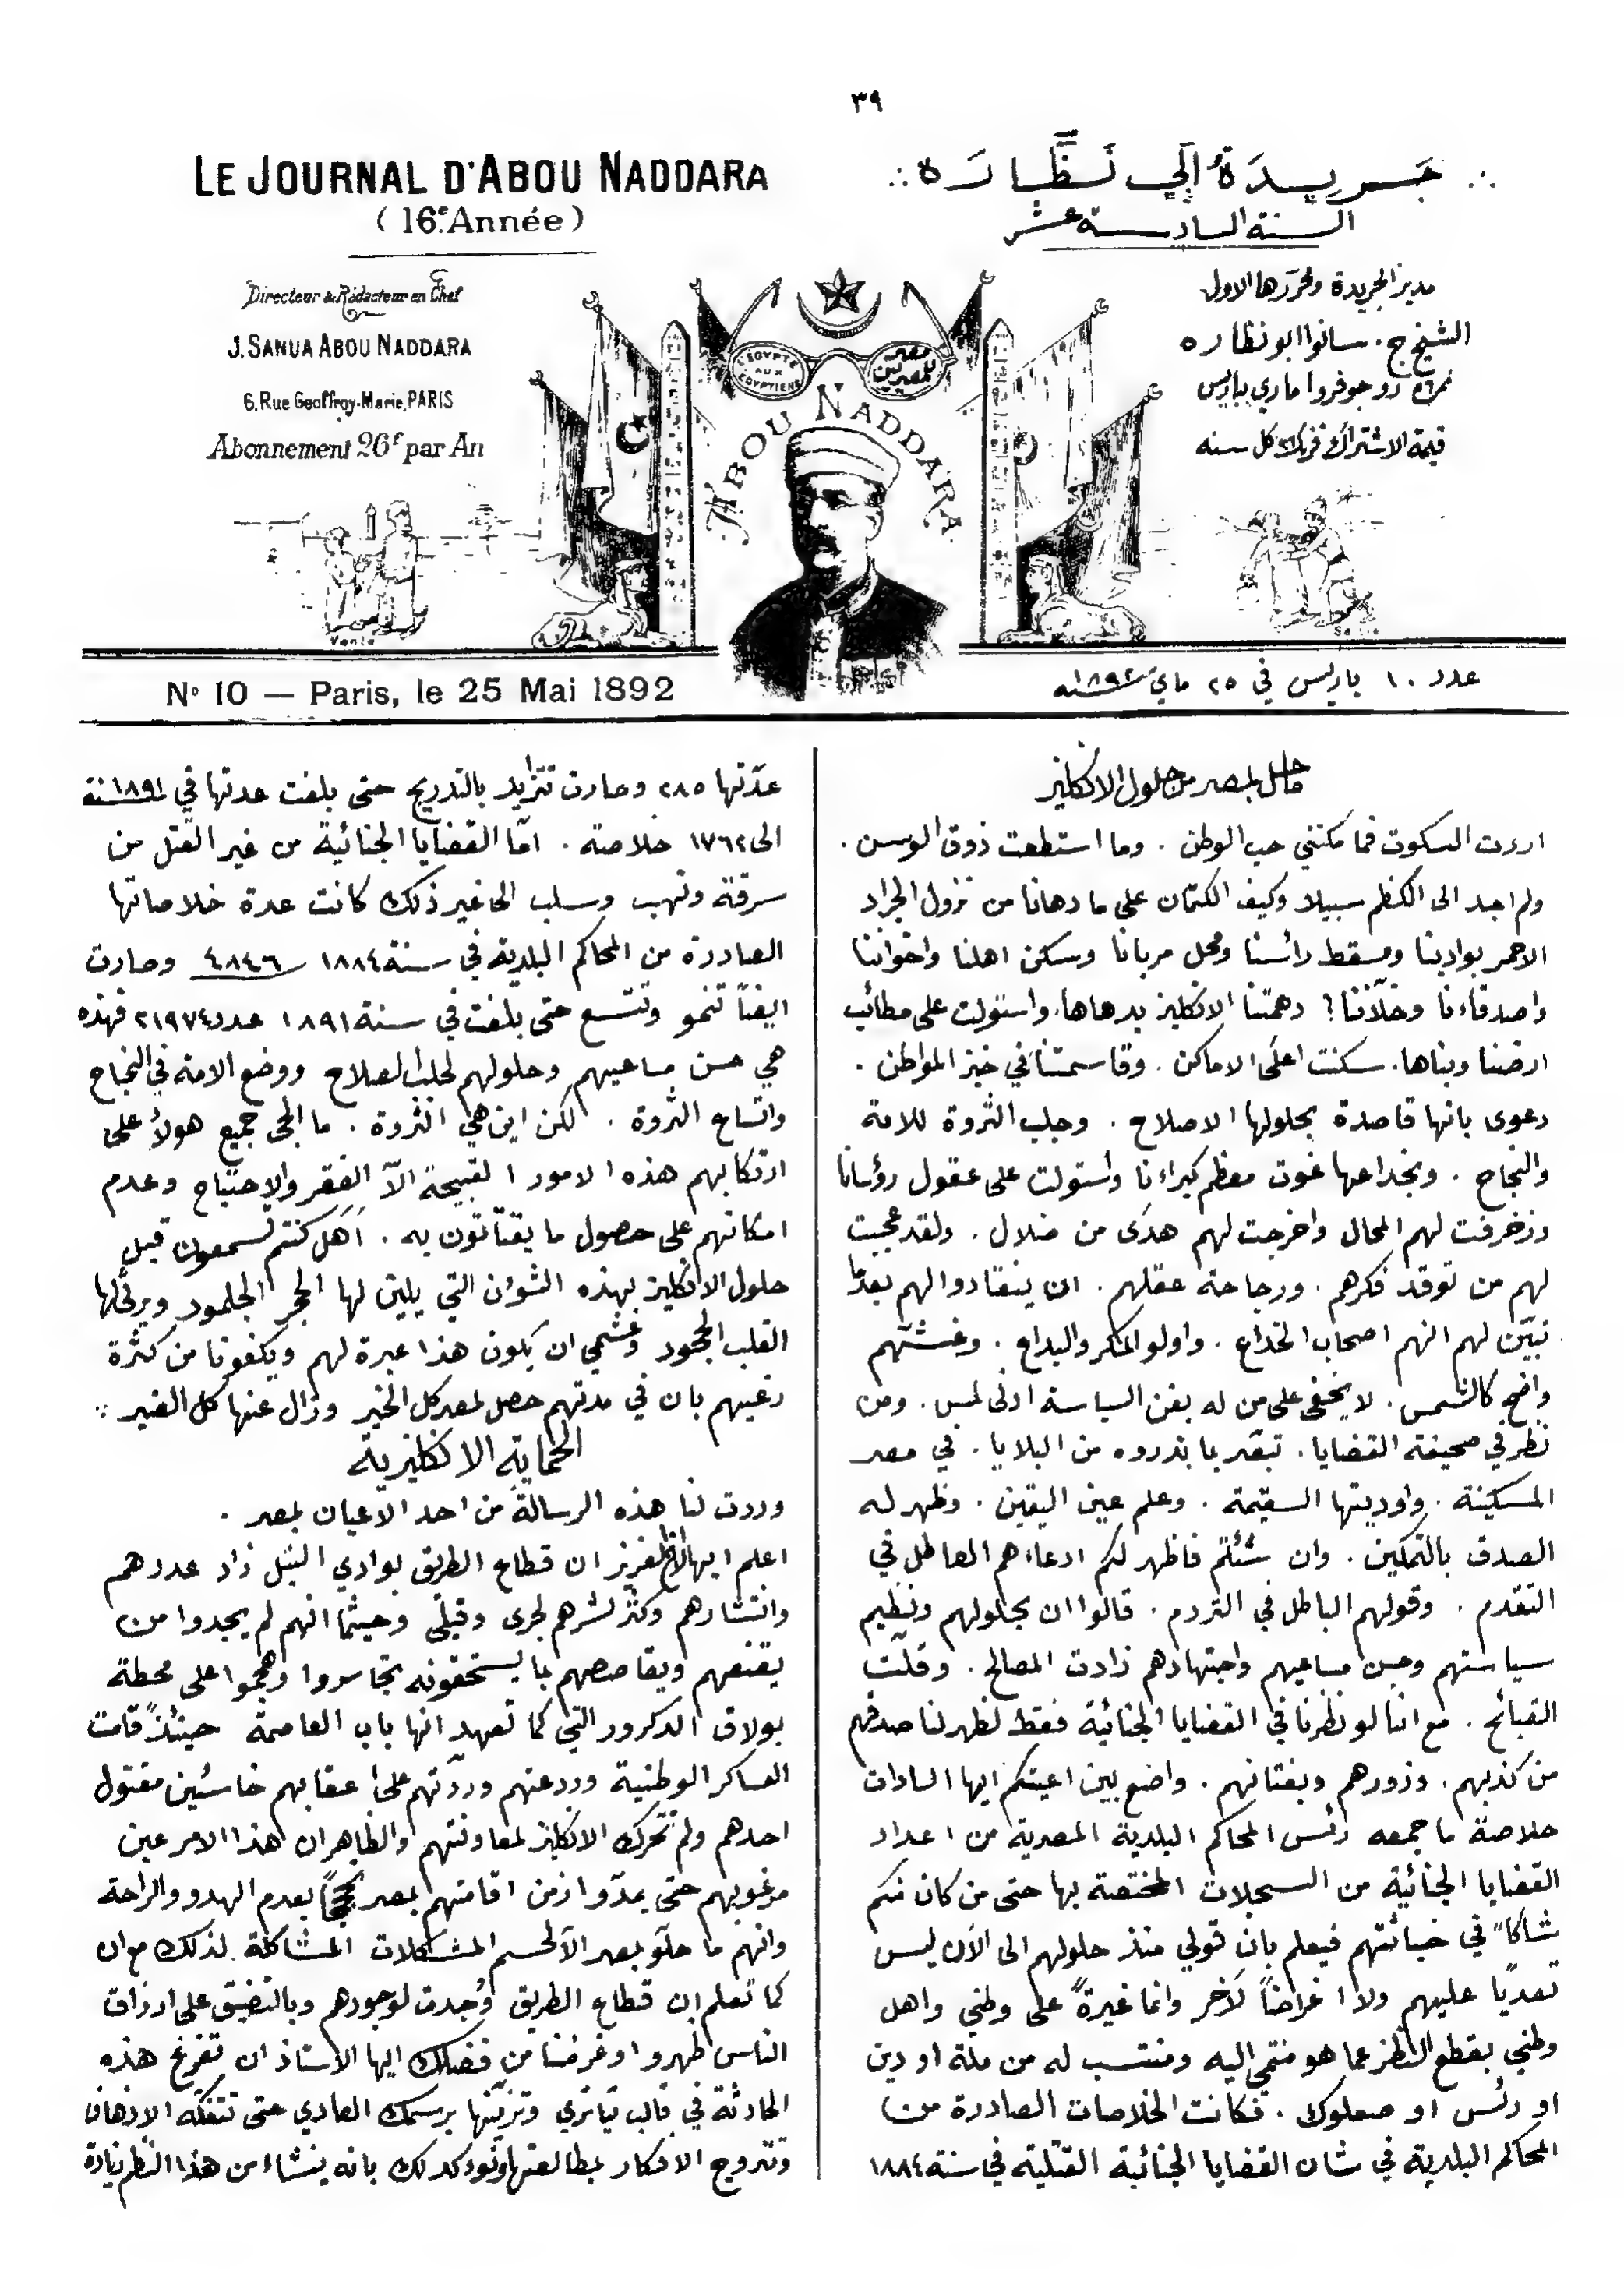 ٣٩
LE JOURNAL D'ABOU NADDARA
(16e Année)
Directeur & Rédacteur en Chef
J. SANUA ABOU NADDARA
6, Rue Geoffroy-Marie, PARIS
Abonnement 26f par An
جريدة ابي نظارة
السنة السادسة عشر
مدير الجريدة ومحررها الاول
الشيخ ج. سانوا ابو نظاره
نمرة ٦ رو جوفروا ماري بباريس
قيمة الاشتراك فرنك كل سنه
L'EGYPTE AUX EGYPTIENS
مصر للمصريين
ABOU NADDARA
Vente
No 10 — Paris, le 25 Mai 1892
عدد ١٠ باريس في ٢٥ ماي سنة ١٨٩٢
ما حل بمصر من حلول الانكليز
اردت السكوت فما مكنني حب الوطن . وما استطعت ذوق الوسن .
ولم اجد الى الكظم سبيلا وكيف الكتمان على ما دهانا من نزول الجراد
الاحمر بوادينا ومسقط رائسنا ومحل مربانا وسكن اهلنا واخواننا
واصدقاءنا وخلاننا ! دهمتنا الانكليز بدهاها . واستولت على مطائب
ارضنا وبناها . سكنت اعلى الاماكن . وقاسمتنا في خبز المواطن .
دعوى بانها قاصدة بحلولها الاصلاح . وجلب الثروة للامة
والنجاح . وبخداعها غوت معظم كبراءنا واستولت على عقول رؤسانا
وزخرفت لهم المحال واخرجت لهم هدى من ضلال . ولقد عجبت
لهم من توقد فكرهم . ورجاحة عقلهم . ان ينقادوا لهم بعدما
تبين لهم انهم اصحاب الخداع . واولو المكر والبداع . وغشهم
واضح كالشمس . لا يخفى على من له بفن السياسة ادنى لمس . ومن
نظر في صحيفة القضايا . تبصر بما بذروه من البلايا . في مصر
المسكينة . واوديتها السقيمة . وعلم عين اليقين . وظهر له
الصدق بالتمكين . وان شئتم فاظهر لكم ادعاءهم العاطل في
التقدم . وقولهم الباطل في التردم . قالوا ان بحلولهم وتنظيم
سياستهم وحسن مساعيهم واجتهادهم زادت المصالح . وقلت
القبائح . مع اننا لو نظرنا في القضايا الجنائية فقط لظهر لنا صدقهم
من كذبهم . وزورهم وبهتانهم . واضع بين اعينكم ايها السادات
خلاصة ما جمعه رئس المحاكم البلدية المصرية من اعداد
القضايا الجنائية من السجلات المختصة بها حتى من كان منكم
شاكاً في خبائثهم فيعلم بان قولي منذ حلولهم الى الآن ليس
تعديا عليهم ولا اغراضاً لآخر وانما غيرةً على وطني واهل
وطني بقطع النظر عما هو منتمي اليه ومنتسب له من ملة او دين
او رئس او صعلوك . فكانت الخلاصات الصادرة من
المحاكم البلدية في شان القضايا الجنائية القتلية في سنة ١٨٨٤
عدتها ٢٨٥ وصارت تتزايد بالتدريج حتى بلغت عدتها في سنة ١٨٩١
الى ١٧٦٢ خلاصة . اما القضايا الجنائية من غير القتل من
سرقة ونهب وسلب الى غير ذلك كانت عدة خلاصاتها
الصادرة من المحاكم البلدية في سنة ١٨٨٤ ٤٨٤٦ وصارت
ايضاً تنمو وتتسع حتى بلغت في سنة ١٨٩١ عدد ٢١٩٧٤ فهذه
هي حسن مساعيهم وحلولهم لجلب الصلاح ووضع الامة في النجاح
واتساع الثروة . لكن اين هي الثروة . ما الجى جميع هولاء على
ارتكابهم هذه الامور القبيحة الاّ الفقر والاحتياج وعدم
امكانهم على حصول ما يقتاتون به . اهل كنتم تسمعون قبل
حلول الانكليز بهذه الشؤن التي يلين لها الحجر الجلمود ويرثي لها
القلب الجحود وعشمي ان يكون هذا عبرة لهم ويكفونا من كثرة
رغيهم بان في مدتهم حصل لمصر كل الخير وزال عنها كل الضير
الحماية الانكليزية
وردت لنا هذه الرسالة من احد الاعيان بمصر .
اعلم ايها الاخ العزيز ان قطاع الطريق بوادي النيل زاد عددهم
وانتشارهم وكثر شرهم بحرى وقبلي وحيثما انهم لم يجدوا من
يقنعهم ويقاصصهم بما يستحقونه تجاسروا وهجموا على محطة
بولاق الدكرور التي كما تعهد انها باب العاصمة حينئذٍ قامت
العساكر الوطنية وردعتهم وردتهم على اعقابهم خاسئين مقتول
احدهم ولم تحرك الانكليز لمعاونتهم والظاهر ان هذا الامر عين
مرغوبهم حتى يمدوا زمن اقامتهم بمصر بعدم الهدو والراحة
وانهم ما حلو بمصر الا لحسم المشكلات المشاكلة لذلك مع ان
كما تعلم ان قطاع الطريق وُجدت لوجودهم وبالتضيق على ارزاق
الناس ظهروا وغرضنا من فضلك ايها الاستاذ ان تفرغ هذه
الحادثة في قالب تياتري وتزينها برسمك العادي حتى تتفكه الاذهان
وتتروح الافكار بمطالعتها ونؤكد لك بانه ينشاء من هذا النظر زيادة